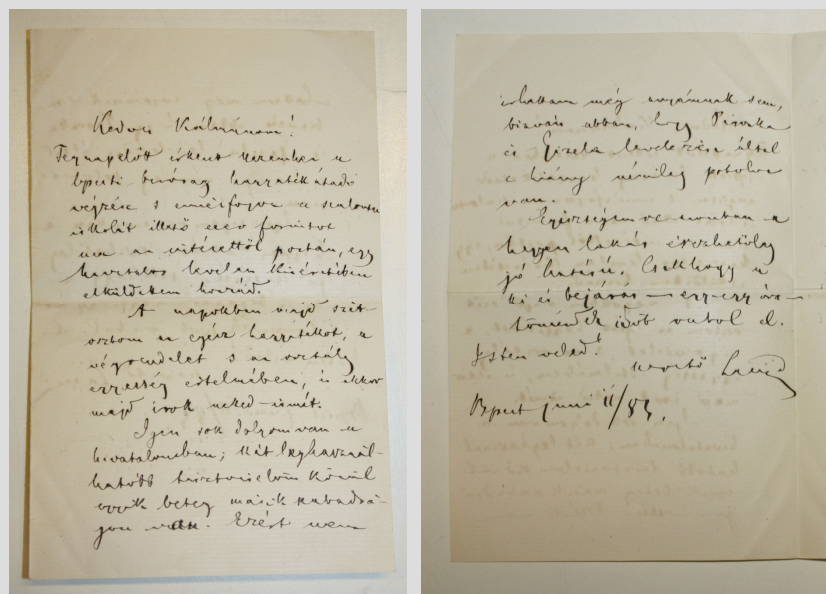 Kedves Kálmánom!
Tegnapelőtt érkezett kezemhez a
bpesti biróság hagyaték átadó
végzése s ennélfogva a szalontai
iskolát illető ezer forintot
ma az intézettől postán, egy
hivatalos levelem kiséretében
elküldettem hozzád.
A napokban majd szét-
osztom az egész hagyatékot, a
végrendelet s az osztály
egyezség értelmében, és ekkor
majd irok neked ismét.
Igen sok dolgom van a
hivatalomban; két leghasznál-
hatóbb tisztviselőm közül
egyik beteg másik szabadsá-
gon van. Ezért nem
irhattam még anyámnak sem,
bizván abban, hogy Piroska
és Gizela levelezése által
e hiány némileg pótolva
van.
Egészségemre azonban a
hegyen lakás érezhetőleg
jó hatású. Csakhogy a
ki és bejárás — egy-egy óra —
töméndek időt rabol el.
Isten veled!
szerető
Bpest juni 11/83.